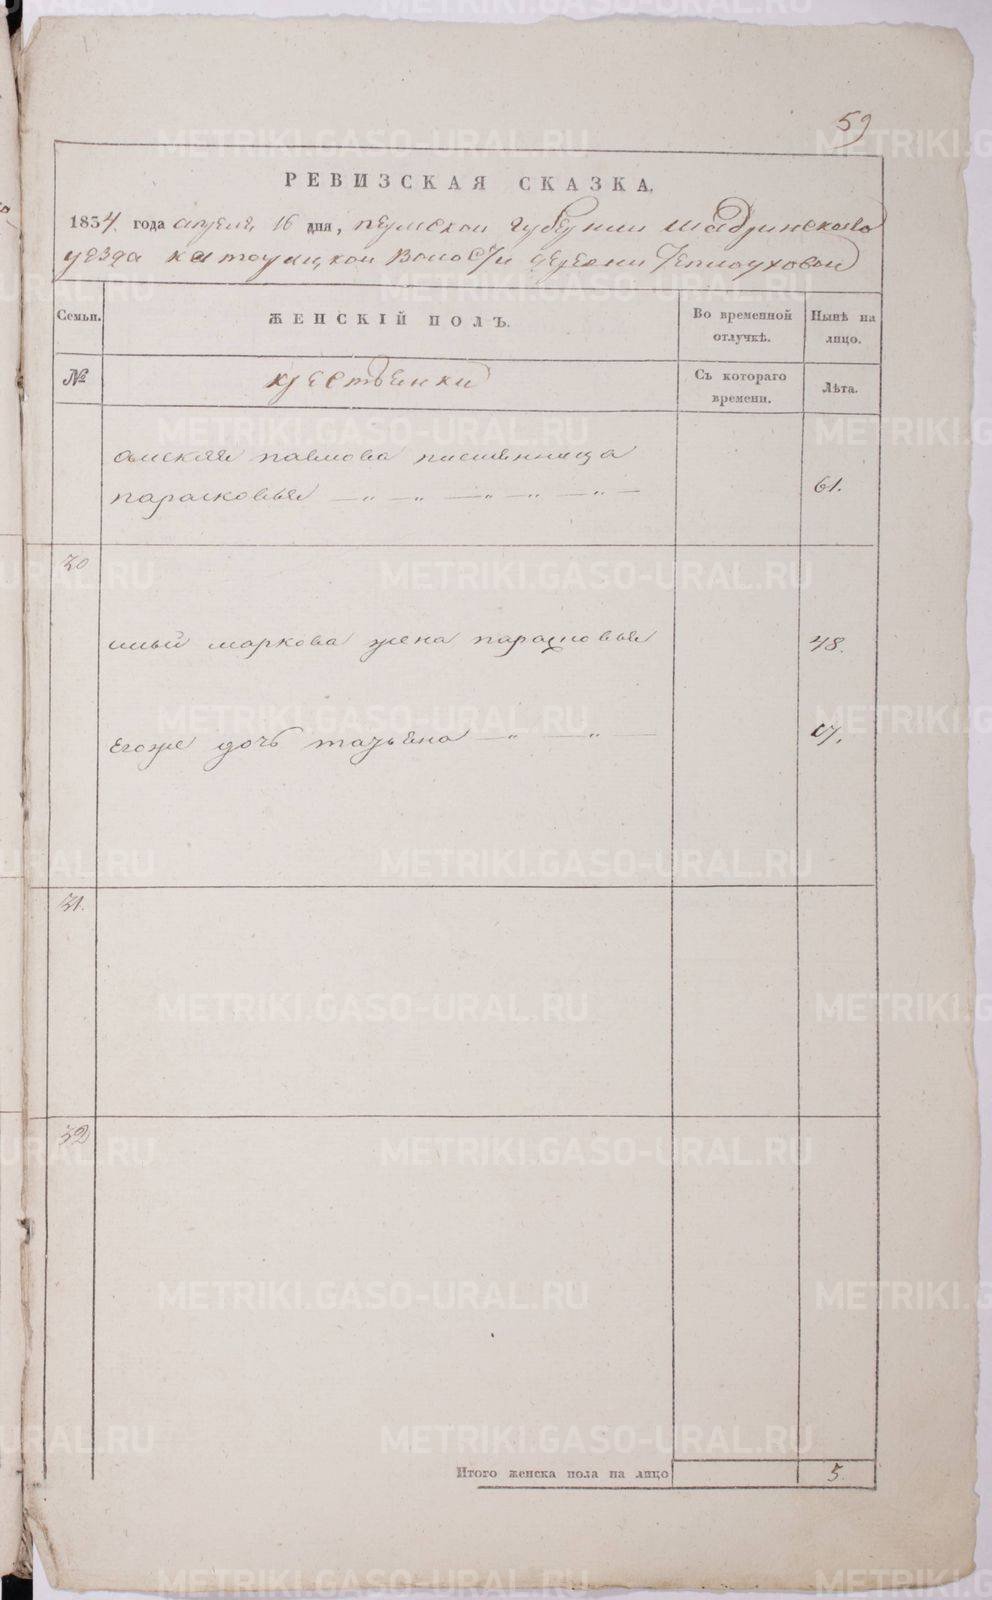 59
РЕВИЗСКАЯ СКАЗКА.
1834 года апреля 16 дня, пермской губернии шадринскаго
уезда катайской волости деревни
Семьи.
ЖЕНСКІЙ ПОЛЪ.
Во временной отлучкѣ.
Нынѣ на лицо.
№
крестьянки
Съ котораго времени.
Лѣта.
павлова
парасковья — „ — „ — „ — „ — „ —
61.
30
маркова жена парасковья
48.
егоже дочь татьяна — „ — „ —
17.
31.
32
Итого женска пола на лицо
5.
METRIKI.GASO-URAL.RU